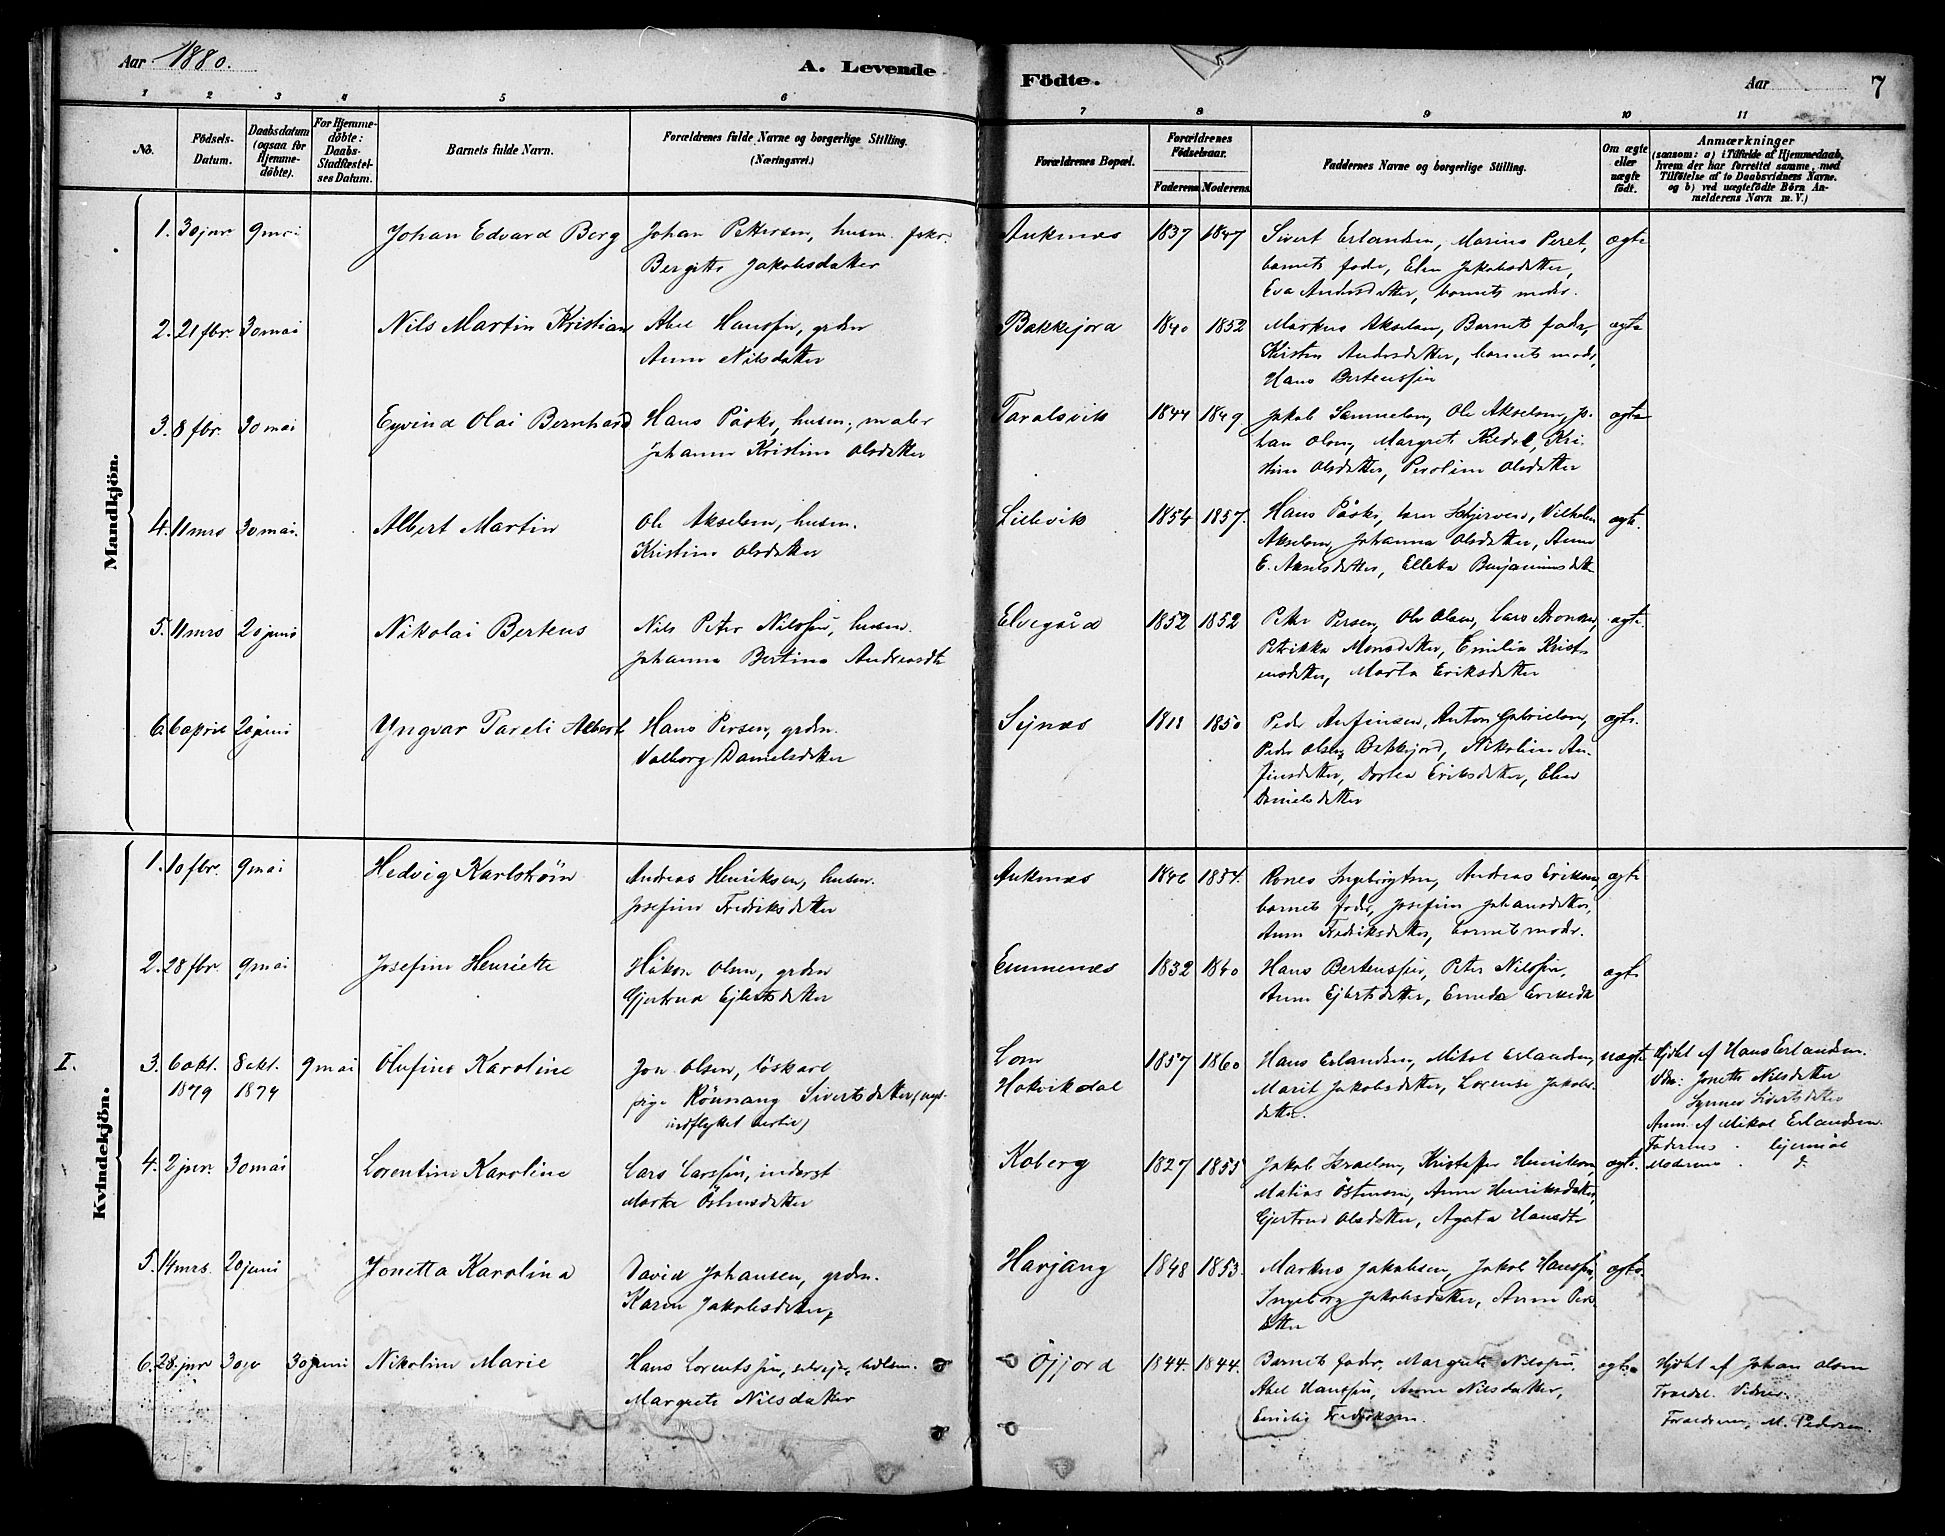 Aar 1880.
A. Levende
Födte.
Aar
7
1 2 3 4 5 6
7 8 9 10 11
No.
Födsels-
Datum.
Daabsdatum
(ogsaa for
Hjemme-
döbte).
For Hjemme-
döbte:
Daabs-
Stadfæstel-
ses Datum.
Barnets fulde Navn.
Forældrenes fulde Navne og borgerlige Stilling.
(Næringsvei.)
Forældrenes Bopæl.
Forældrenes
Födselsaar.
Faderens Moderens.
Faddernes Navne og borgerlige Stilling.
Om ægte
eller
uægte
födt.
Anmærkninger
(saasom: a) i Tilfælde af Hjemmedaab,
hvem der har forrettet samme, med
Tilföielse af to Daabsvidners Navne.
og b) ved uægtefödte Börn An-
melderens Navn m. V.)
Mandkjön.
1. 30 jnr. 9 mai
Johan Edvard Berg
Johan Pettersen, husm.
Bergitte Jakobsdatter
Ankenæs
1837 1847
Sivert Erlandsen, Marius Peret,
barnets fader, Elen Jakobsdatter,
Eva Andersdatter, barnets moder.
ægte
2. 21 fbr. 30 mai
Nils Martin Kristian
Abel Hanssen, grdm
Anne Nilsdatter
Bakkejord
1840 1852
Markus Akselsen, Barnets fader,
Kirsten Andersdatter, barnets moder,
Hans Bertenssen
ægte
3. 8 fbr. 30 mai
Eyvind Olai Bernhard
Hans Påske, husm., maler
Johanne Kristine Olsdatter
Taralsvik
1844 1849
Jakob Samuelsen, Ole Akselsen, Jo-
han Olsen, Margrete Kri-
stine Olsdatter, Peroline Olsdatter
ægte
4. 11 mrs 30 mai.
Albert Martin
Ole Akselsen, husm.
Kristine Olsdatter
Lillevik
1854 1857.
Hans Påske, Vilhelm
Akselsen, Johanna Olsdatter, Anne
E. Akselsdatter, Benjaminsdatt
ægte.
5. 11 mrs 20 juni
Nikolai Bertens
Nils Peter Nilssen, husm.
Johanna Bertine Andreasdt
Elvegård
1852 1852
Peter Persen, Ole Olsen, Lars Aronsen,
Petrikke Monsdatter, Emilie Krist-
ensdatter, Marta Eriksdatter
ægte.
6. 6 april 20 juni
Yngvar Tareli Albert
Hans Persen, grdm.
Valborg Danielsdatter
Sejnes
1850
Peder Anfinsen, Anton Gabrielsen,
Peder Olsen Bakkejord, Nikoline An-
finsdatter, Dortea Eriksdatter, Elen
Danielsdatter
ægte.
Kvindekjön.
1. 10 fbr. 9 mai
Hedvig Karlström
Andreas Henriksen, husm.
Josefine Fredriksdatter
Ankenæs
1846 1854.
Rones Ingebrigtsen, Andreas Eriksen,
barnets fader, Josefine Johansdatter,
Anne Fredriksdatter, barnets moder.
ægte
2. 28 fbr. 9 mai
Josefine Henriette
Håkon Olsen, grdm
Gjertrud Ejlertsdatter
Emmenæs
1832 1840
Hans Bertenssen, Peter Nilssen,
Anne Ejlertsdatter, Eriksdt
ægte
I.
3. 6 okt. 8 okt. 9 mai
1879 1879
Olufine Karoline
Jon Olsen, löskarl
pige Rönnaug Sivertsdatter (nys-
indflyttet hertil)
Lom
Håkvikdal
1857 1860
Hans Erlandsen, Mikal Erlandsen,
Marit Jakobsdatter, Lorense Jakobs-
datter.
uægte
Hjdbt. af Hans Erlandsen.
Vdn: Jonette Nilsdatter
Synnev Sivertsdatter
Anm. af Mikal Erlandsen.
Faderens hjemsöl
Moderens
4. 2 jnr. 30 mai
Lorentine Karoline
Lars Larssen, inderst
Marta Östensdatter
Koberg
1827 1855
Jakob Israelsen, Kristoffer Henriksen,
Matias Östensen, Anne Henriksdatter,
Gjertrud Olsdatter, Agata Hansdtr
ægte.
5. 14 mrs. 20 juni
Jonetta Karolina
David Johansen, grdm.
Karen Jakobsdatter
Harjang
1848 1853.
Markus Jakobsen, Jakob Hanssen,
Ingeborg Jakobsdatter, Anne Pers-
datter
ægte.
6. 28. jnr 30 30 juni
Nikoline Marie
Hans Lorentssen,
Margrete Nilsdatter
Öjjord
1844. 1844.
Barnets fader, Margrete Nilssen,
Abel Hanssen, Anne Nilsdatter,
Emilie Fredriksen.
ægte
Hjdbt af Johan Olsen
M. Pedersen.